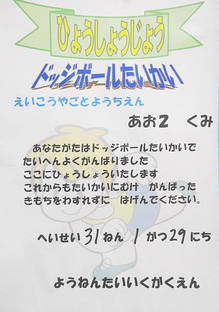 ひょうしょうじょう
ドッジボールたいかい
えいこうやごとようちえん
あお2 くみ
あなたがたはドッジボールたいかいで
たいへんよくがんばりました
ここにひょうしょういたします
これからもたいかいにむけ がんばった
きもちをわすれずに はげんでください。
へいせい31ねん 1がつ29にち
ようねんたいいくかがくえん